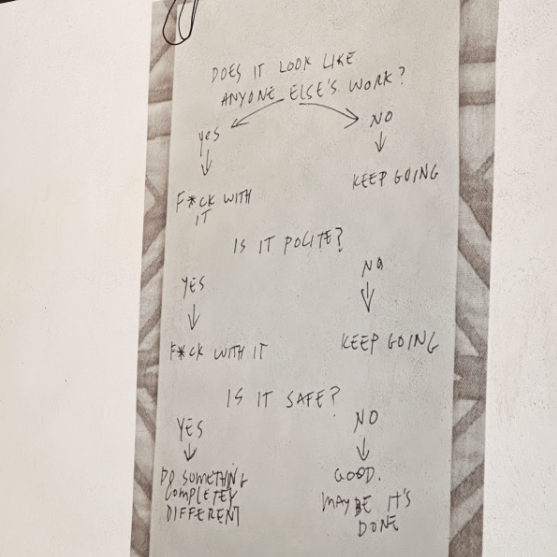 DOES IT LOOK LIKE
ANYONE ELSE'S WORK?
yes NO
F*CK WITH IT KEEP GOING
IS IT POLITE?
YES NO
F*CK WITH IT KEEP GOING
IS IT SAFE?
YES NO
DO SOMETHING
COMPLETELY
DIFFERENT
GOOD.
MAYBE IT'S
DONE